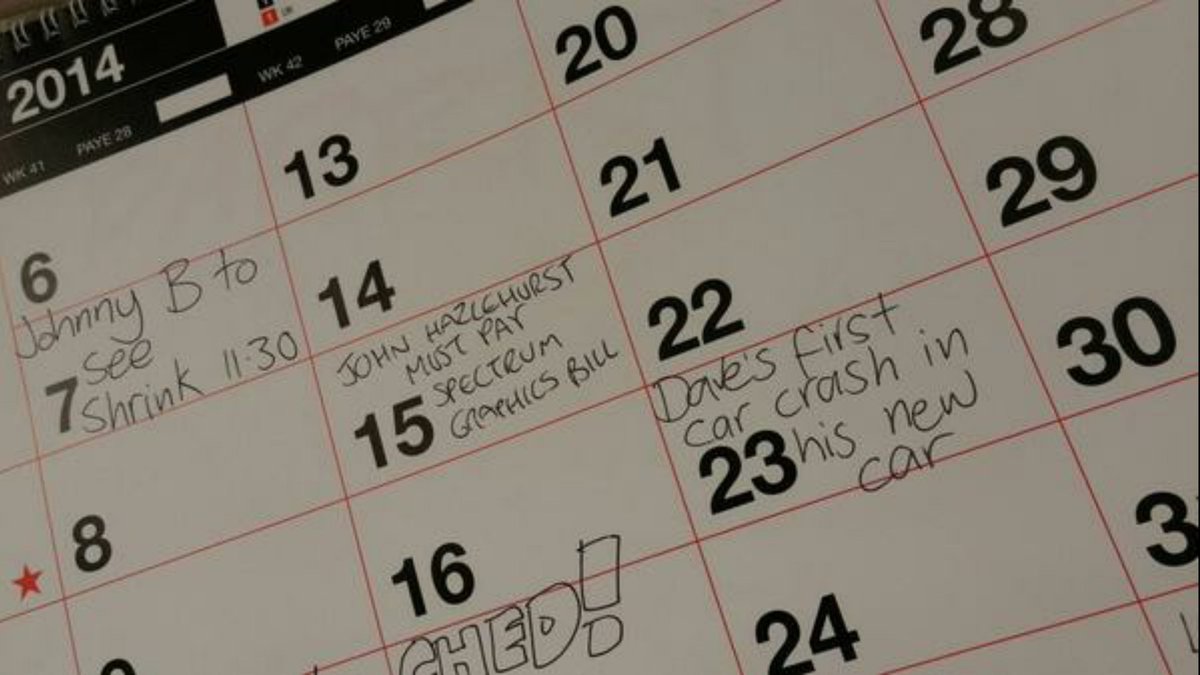 2014
UK
WK 41 PAYE 28
WK 42 PAYE 29
6
Johnny B to
see
7 Shrink 11:30
8
13
14
JOHN HAZLEHURST
MUST PAY
SPECTRUM
15 GRAPHICS BILL
16
CHED!
20
21
22
Dave's first
car crash in
23 his new
car
24
28
29
30